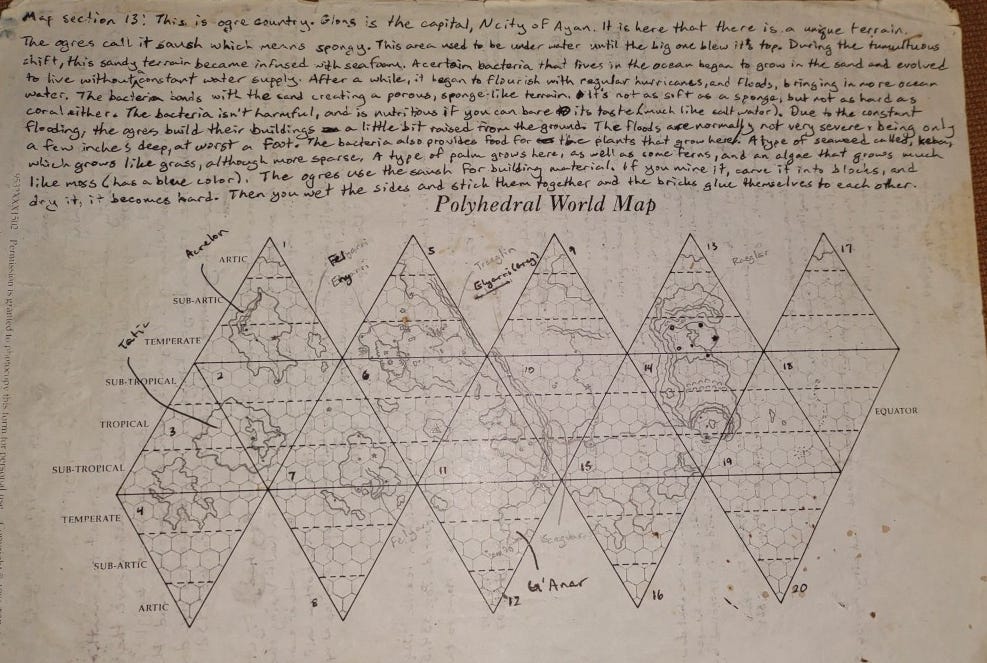 Map section 13: This is ogre country. Glons is the capital, N city of Ayan. It is here that there is a unique terrain.
The ogres call it saush which means spongy. This area used to be under water until the big one blew it's top. During the tumultuous
shift, this sandy terrain became infused with seafoam. A certain bacteria that lives in the ocean began to grow in the sand and evolved
to live without constant water supply. After a while, it began to flourish with regular hurricanes, and floods, bringing in more ocean
water. The bacteria bonds with the sand creating a porous, sponge-like terrain. It's not as soft as a sponge, but not as hard as
coral either. The bacteria isn't harmful, and is nutritious if you can bare its taste (much like salt water). Due to the constant
flooding, the ogres build their buildings a little bit raised from the ground. The floods are normally not very severe, being only
a few inches deep, at worst a foot. The bacteria also provides food for the plants that grow here. A type of seaweed called,
which grows like grass, although more sparse. A type of palm grows here, as well as some ferns, and an algae that grows much
like moss (has a blue color). The ogres use the saush for building material. If you mine it, carve it into blocks, and
dry it, it becomes hard. Then you wet the sides and stick them together and the bricks glue themselves to each other.
Polyhedral World Map
Acrelon
1
5
9
13
17
ARTIC
SUB-ARTIC
TEMPERATE
SUB-TROPICAL
2
6
10
14
18
TROPICAL
3
EQUATOR
SUB-TROPICAL
7
11
15
19
4
TEMPERATE
SUB-ARTIC
ARTIC
G'Aner
8
12
16
20
Permission is granted to photocopy this form for personal use.